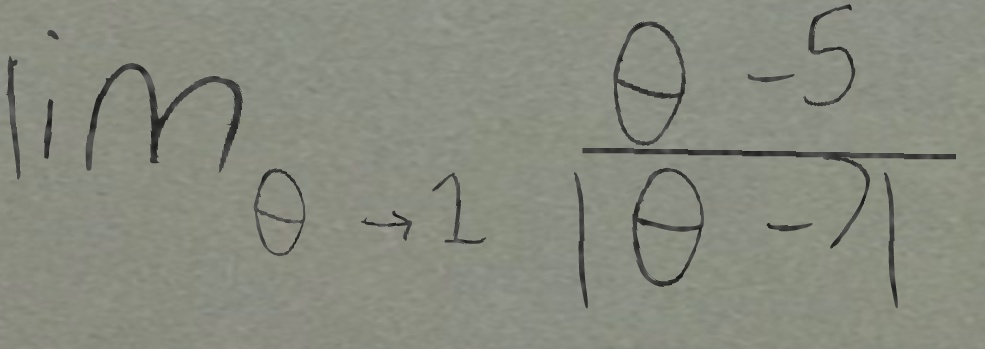 lim θ → 1 (θ - 5) / |θ - 7|